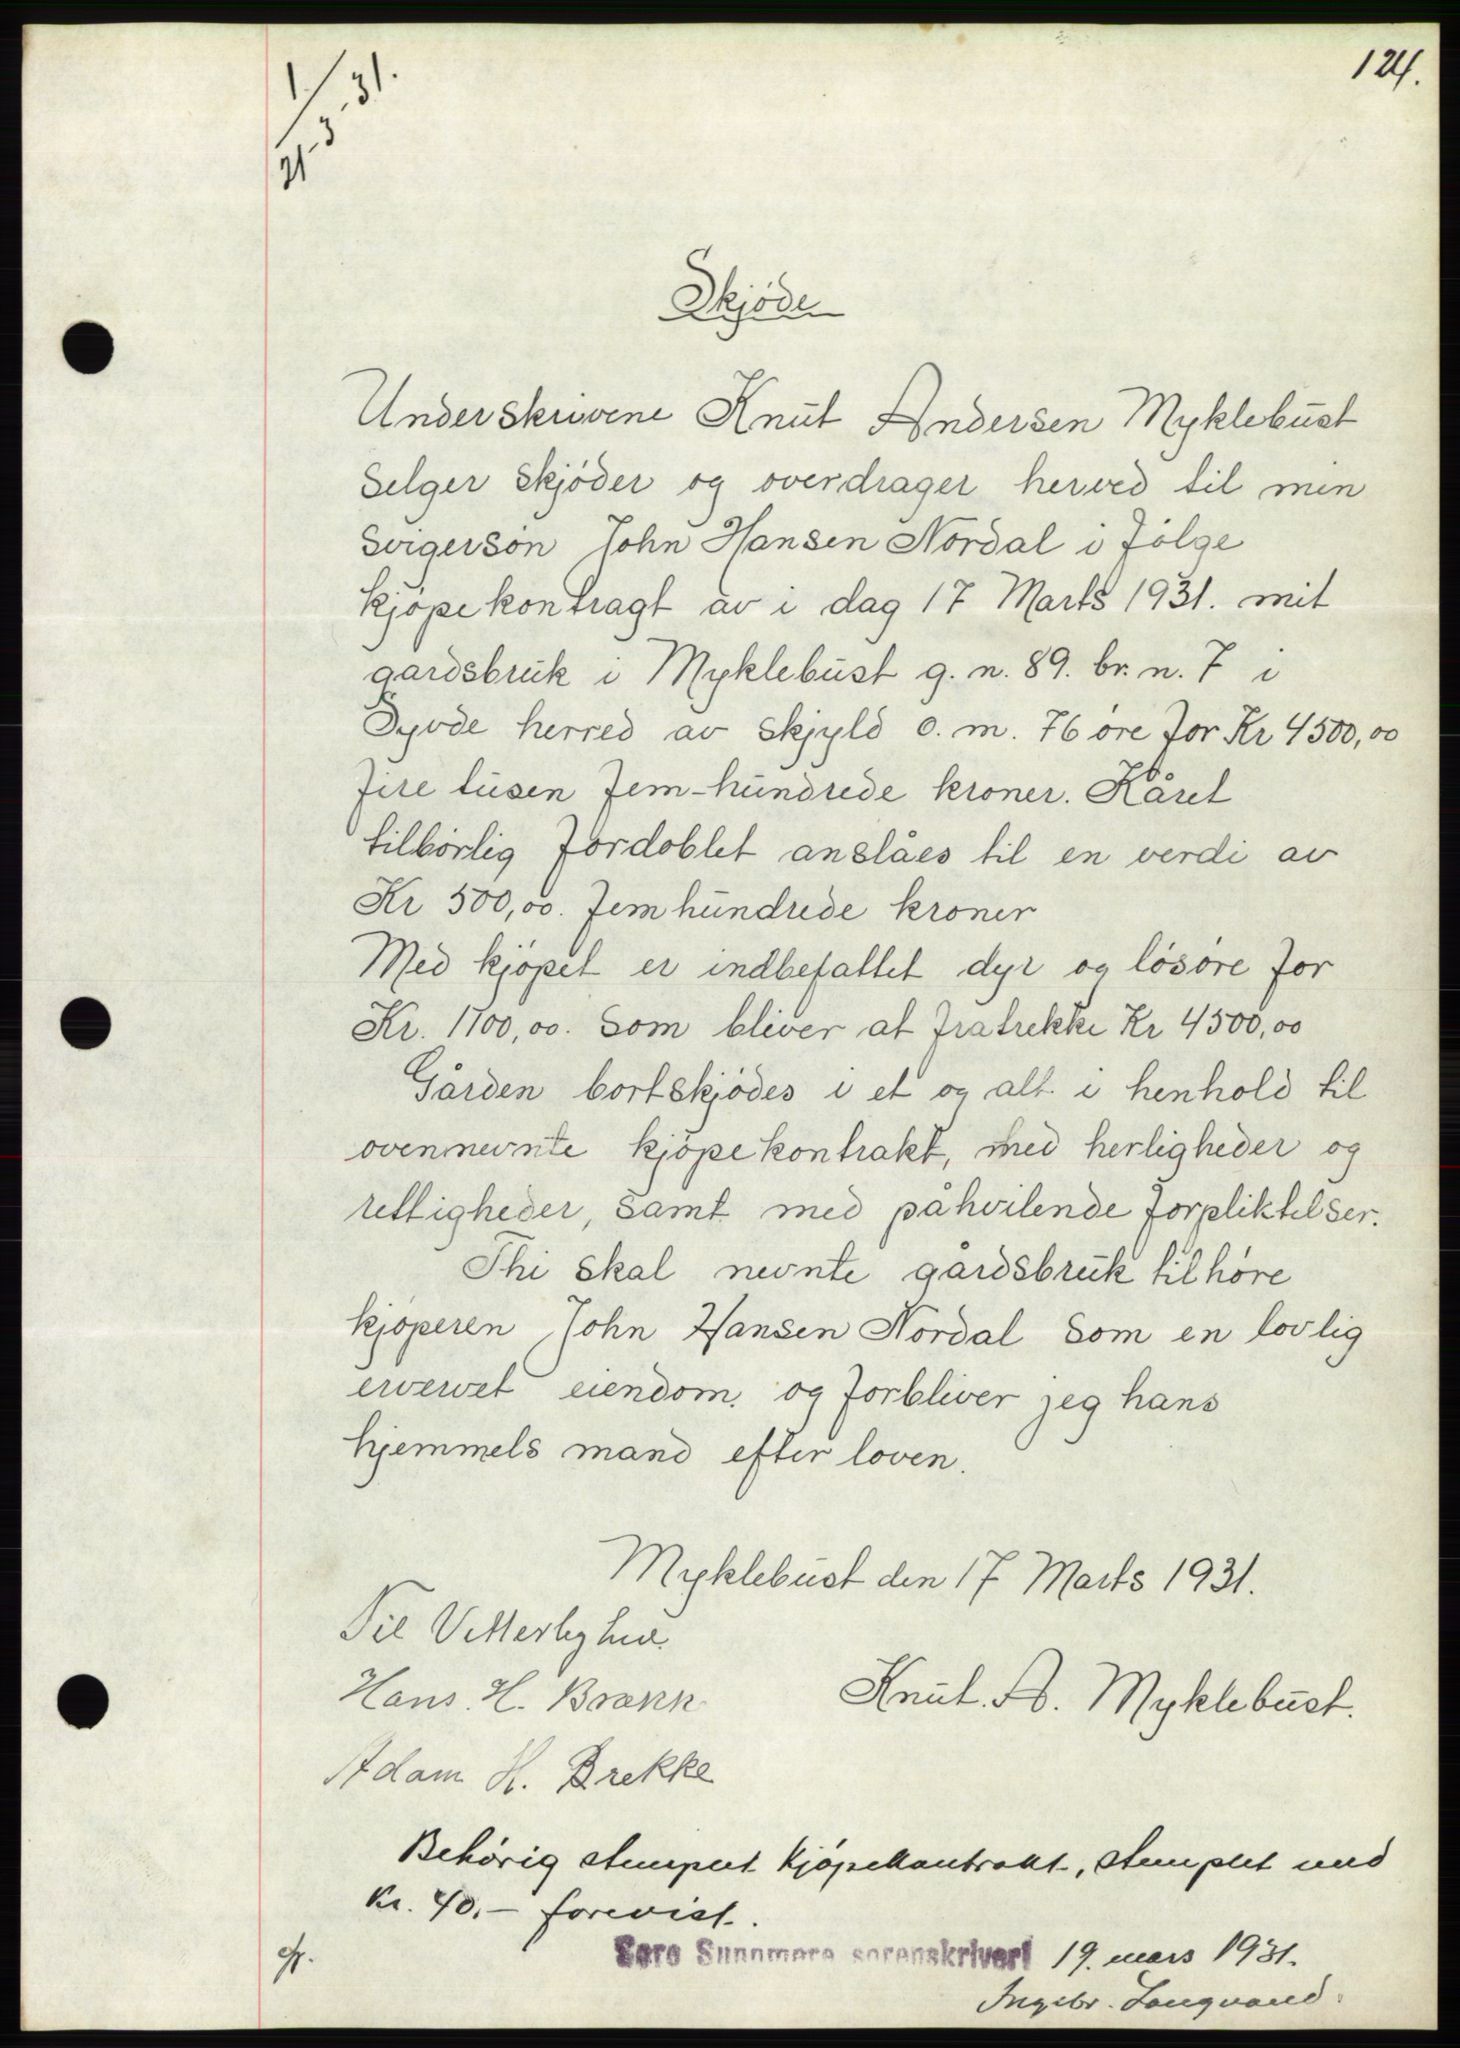 124.
1/21-3-31.
Skjøde
Underskrivene Knut Andersen Myklebust
selger skjøder og overdrager herved til min
svigersøn John Hansen Nordal i følge
kjøpekontragt av i dag 17 Marts 1931. mit
gardsbruk i Myklebust g. n. 89. br. n. 7 i
Syvde herred av skjyld o. m. 76 øre for Kr 4500,00
fire tusen fem-hundrede kroner. Kåret
tilbørlig fordoblet anslåes til en verdi av
Kr 500,00. fem hundrede kroner
Med kjøpet er indbefattet dyr og løsøre for
Kr. 1700,00. som bliver at fratrekke Kr 4500,00
Gården bortskjødes i et og alt i henhold til
ovennevnte kjøpekontrakt, med herligheder og
rettigheder, samt med påhvilende forpliktelser.
Thi skal nevnte gårdsbruk tilhøre
kjøperen John Hansen Nordal som en lovlig
ervervet eiendom. og forbliver jeg hans
hjemmels mand efter loven.
Myklebust den 17 Marts 1931.
Til Vitterlighed.
Hans. H. Brekke
Knut. A. Myklebust.
Adam H. Brekke
Behørig stemplet kjøpekontrakt, stemplet med
kr. 40.- forevist.
Søre Sunnmøre sorenskriveri 19. mars 1931.
Ingebr. Langvand.